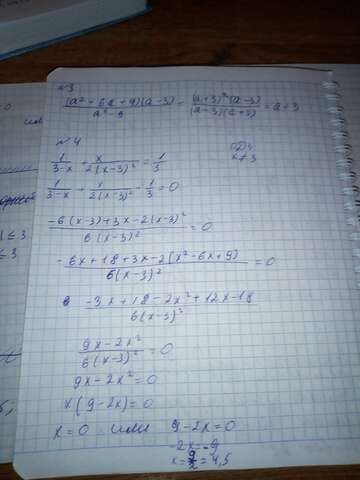 №3
(a² + 6a + 9)(a-3) / a² - 9 = (a+3)²(a-3) / (a-3)(a+3) = a+3
№4
1/(3-x) + x/2(x-3)² = 1/3
ОДЗ
x ≠ 3
1/(3-x) + x/2(x-3)² - 1/3 = 0
-6(x-3)+3x-2(x-3)² / 6(x-3)² = 0
-6x+18+3x-2(x²-6x+9) / 6(x-3)² = 0
-3x+18-2x²+12x-18 / 6(x-3)²
9x-2x² / 6(x-3)² = 0
9x-2x² = 0
x(9-2x) = 0
x = 0 или 9-2x = 0
-2x = -9
x = 9/2 = 4,5
≤ 3
≤ 3